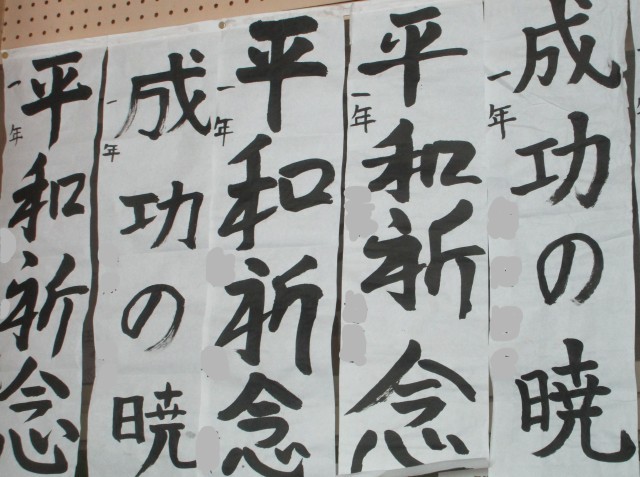 成功の暁
一年
平和祈念
一年
平和祈念
一年
成功の暁
一年
平和祈念
一年